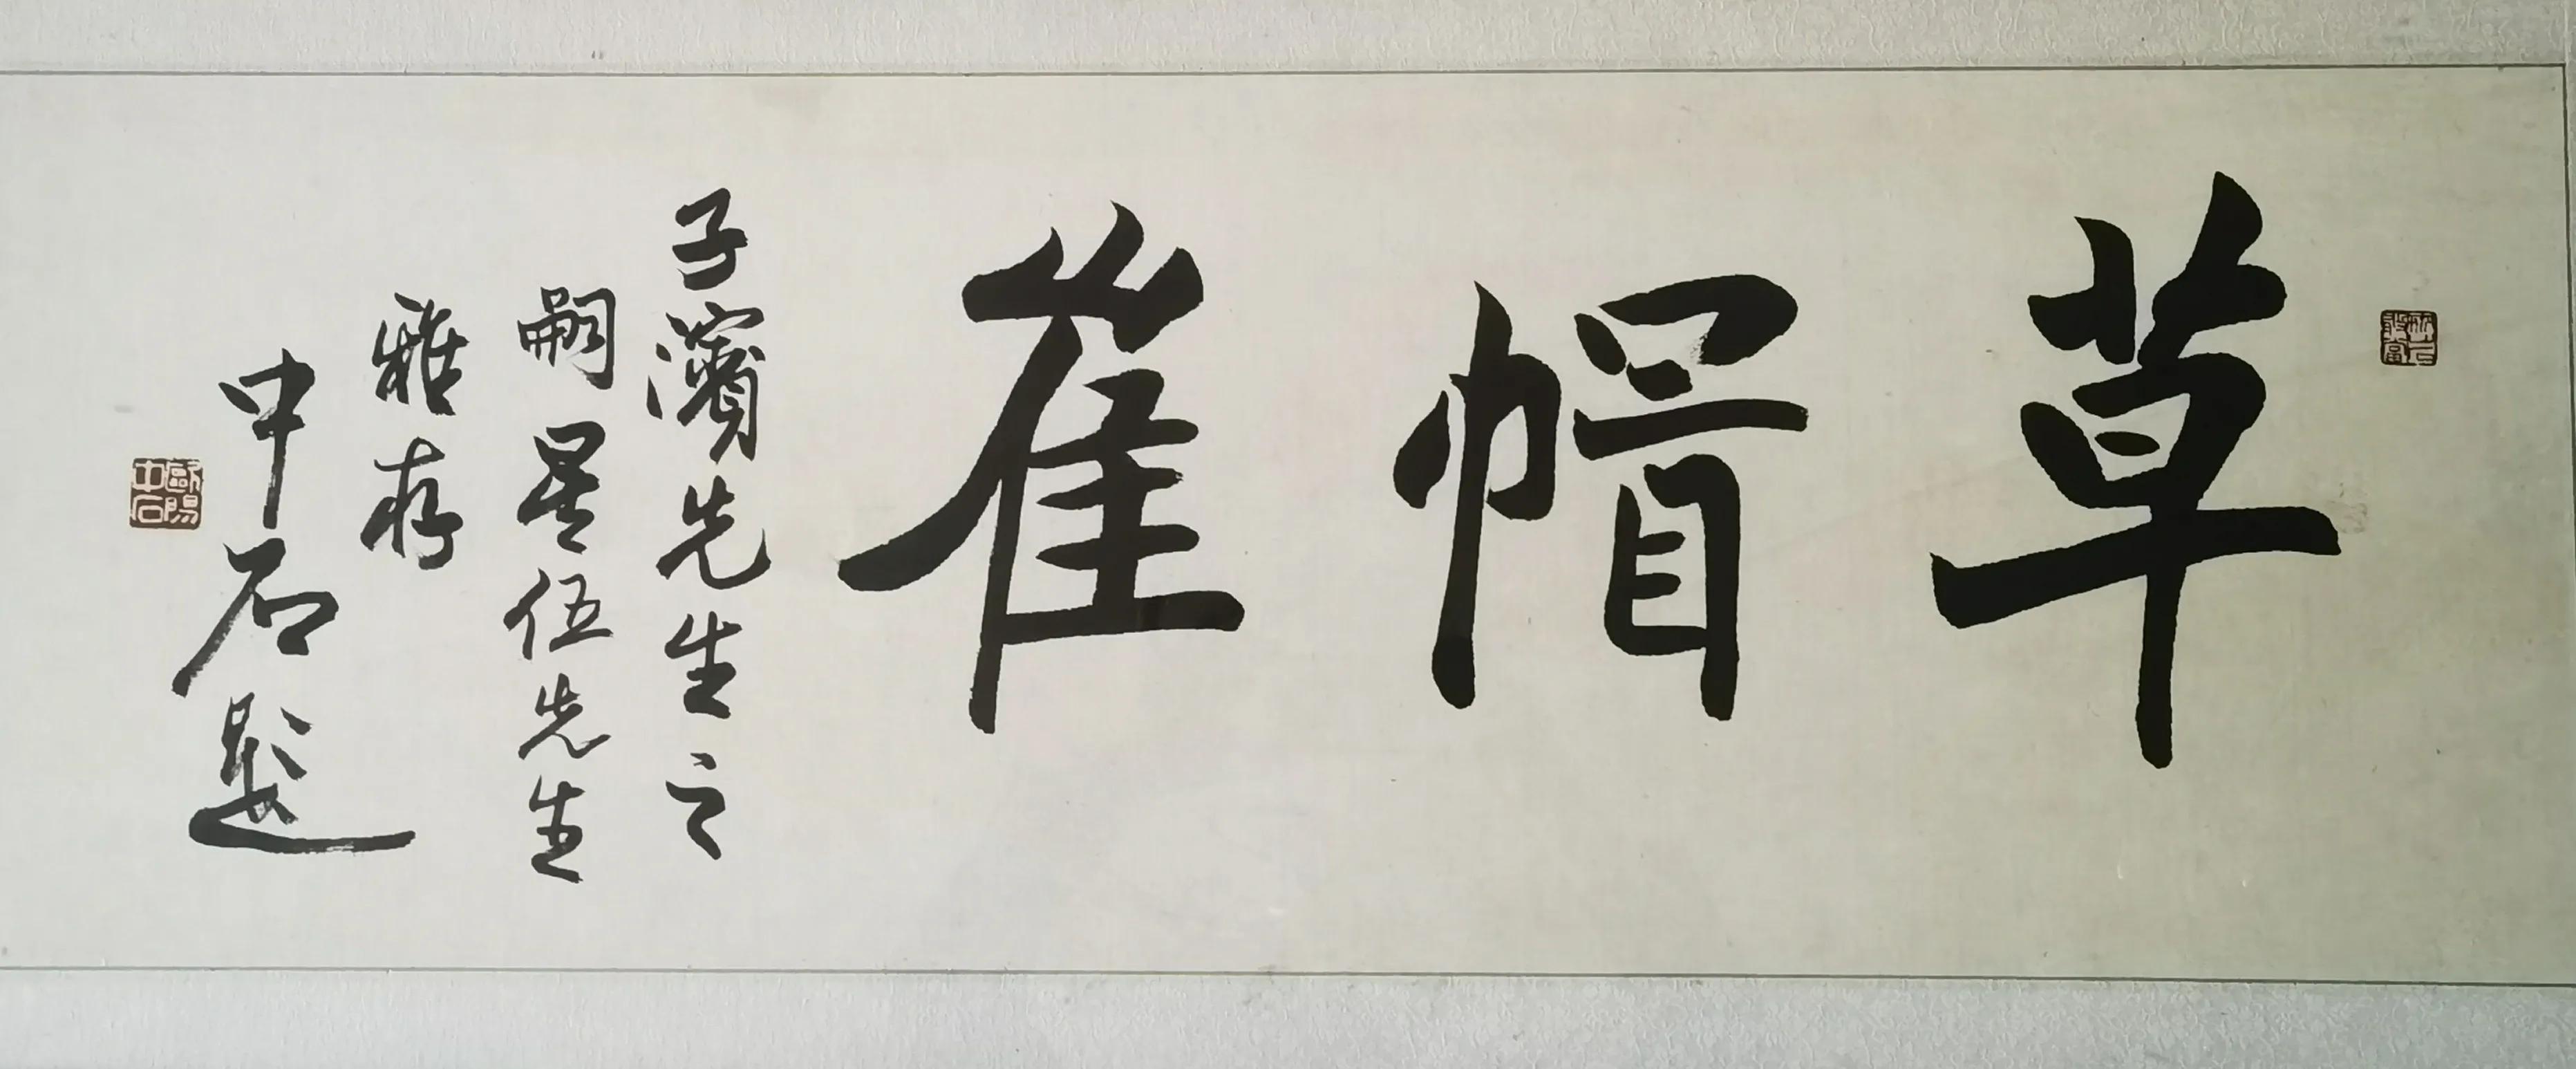 草帽崔
子濱先生之
嗣星伍先生
雅存
中石题
歐陽中石